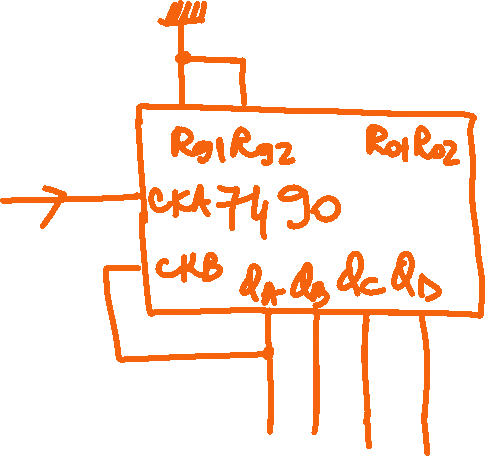 R91 R92 R01 R02
CKA 7490
CKB
QA QB QC QD